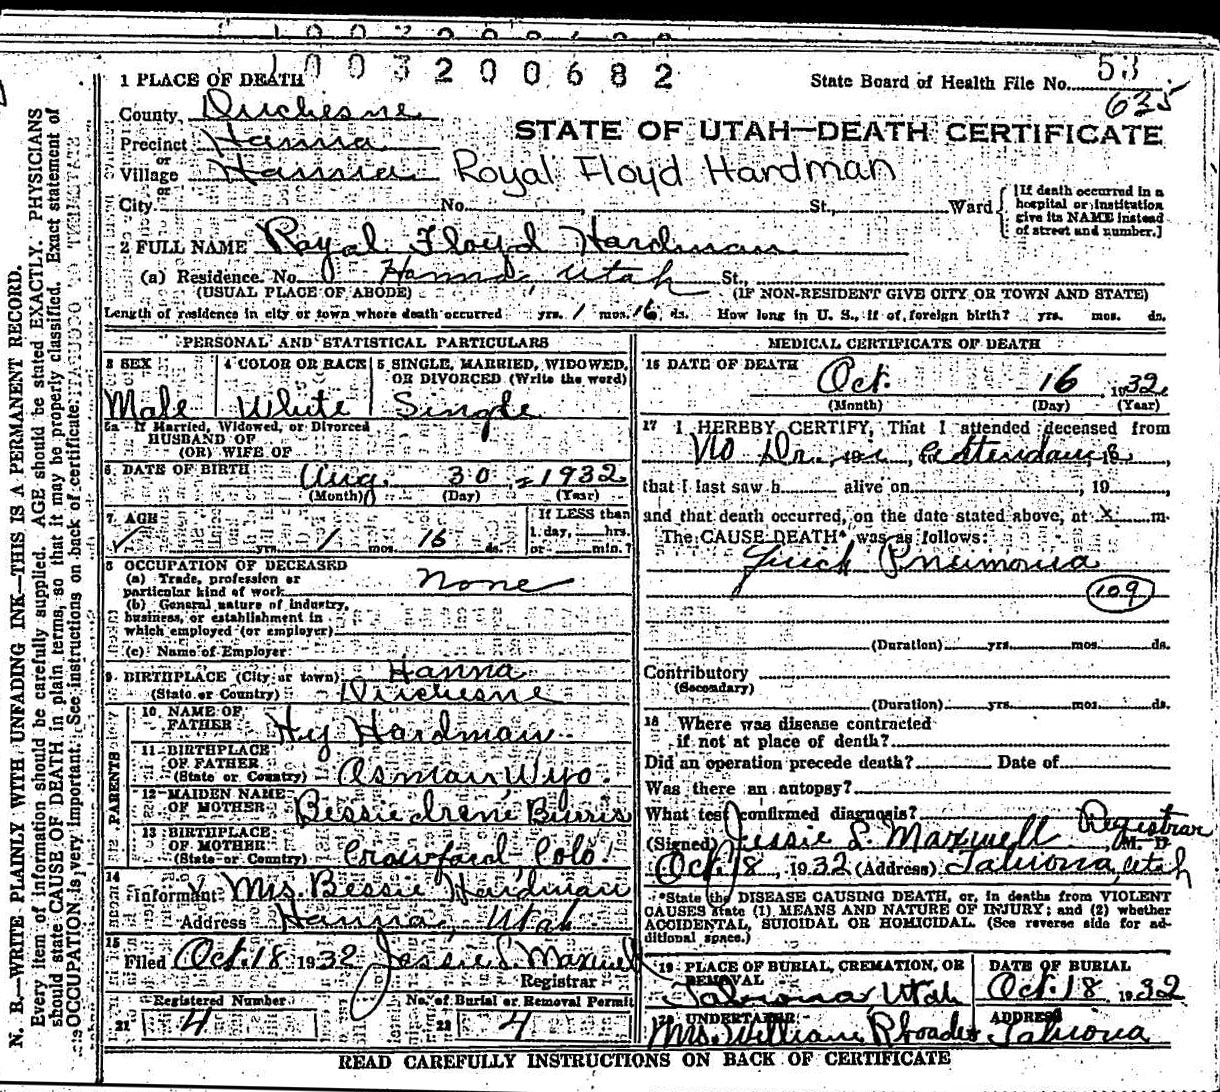 1003200682
1 PLACE OF DEATH
State Board of Health File No. 53
635
County Duchesne
STATE OF UTAH—DEATH CERTIFICATE
Precinct Hanna
or
Village Hanna Royal Floyd Hardman
or
City No. St., Ward
[If death occurred in a hospital or institution give its NAME instead of street and number.]
2 FULL NAME Royal Floyd Hardman
(a) Residence. No. Hanna, Utah St.,
(USUAL PLACE OF ABODE) (IF NON-RESIDENT GIVE CITY OR TOWN AND STATE)
Length of residence in city or town where death occurred yrs. 1 mos. 16 ds. How long in U. S., if of foreign birth? yrs. mos. ds.
PERSONAL AND STATISTICAL PARTICULARS
3 SEX
Male
4 COLOR OR RACE
White
5 SINGLE, MARRIED, WIDOWED, OR DIVORCED (Write the word)
Single
5a If Married, Widowed, or Divorced
HUSBAND OF
(OR) WIFE OF
6. DATE OF BIRTH Aug. 30 - 1932
(Month) (Day) (Year)
7. AGE
yrs. 1 mos. 16 ds.
If LESS than
1 day, hrs.
or min.?
8 OCCUPATION OF DECEASED
(a) Trade, profession or
particular kind of work None
(b) General nature of industry,
business, or establishment in
which employed (or employer)
(c) Name of Employer
9. BIRTHPLACE (City or town) Hanna
(State or Country) Duchesne
PARENTS
10 NAME OF
FATHER Hy Hardman
11 BIRTHPLACE
OF FATHER
(State or Country) Osman Wyo.
12 MAIDEN NAME
OF MOTHER Bessie Irene Burris
13 BIRTHPLACE
OF MOTHER
(State or Country) Crawford Colo.
14
Informant Mrs. Bessie Hardman
Address Hanna, Utah
15
Filed Oct. 18 1932 Jessie L. Maxwell
Registrar
Registered Number No. of Burial or Removal Permit
21 4 22 4
MEDICAL CERTIFICATE OF DEATH
16 DATE OF DEATH
Oct. 16, 1932
(Month) (Day) (Year)
17 I HEREBY CERTIFY, That I attended deceased from
No Dr. in Attendance
that I last saw h alive on , 19 ,
and that death occurred, on the date stated above, at x m.
The CAUSE DEATH* was as follows:
Quick Pneumonia
109
(Duration) yrs. mos. ds.
Contributory
(Secondary)
(Duration) yrs. mos. ds.
18 Where was disease contracted
if not at place of death?
Did an operation precede death? Date of
Was there an autopsy?
What test confirmed diagnosis?
(Signed) Jessie L. Maxwell Registrar M. D.
Oct 18, 1932 (Address) Tabiona, Utah
*State the DISEASE CAUSING DEATH, or, in deaths from VIOLENT
CAUSES state (1) MEANS AND NATURE OF INJURY; and (2) whether
ACCIDENTAL, SUICIDAL OR HOMICIDAL. (See reverse side for ad-
ditional space.)
19 PLACE OF BURIAL, CREMATION, OR
REMOVAL
Tabiona Utah
DATE OF BURIAL
Oct. 18, 1932
20 UNDERTAKER
Mrs. William Rhoades
ADDRESS
Tabiona
READ CAREFULLY INSTRUCTIONS ON BACK OF CERTIFICATE
N. B.—WRITE PLAINLY WITH UNFADING INK—THIS IS A PERMANENT RECORD.
Every item of information should be carefully supplied. AGE should be stated EXACTLY. PHYSICIANS
should state CAUSE OF DEATH in plain terms, so that it may be properly classified. Exact statement of
OCCUPATION is very important. See instructions on back of certificate.